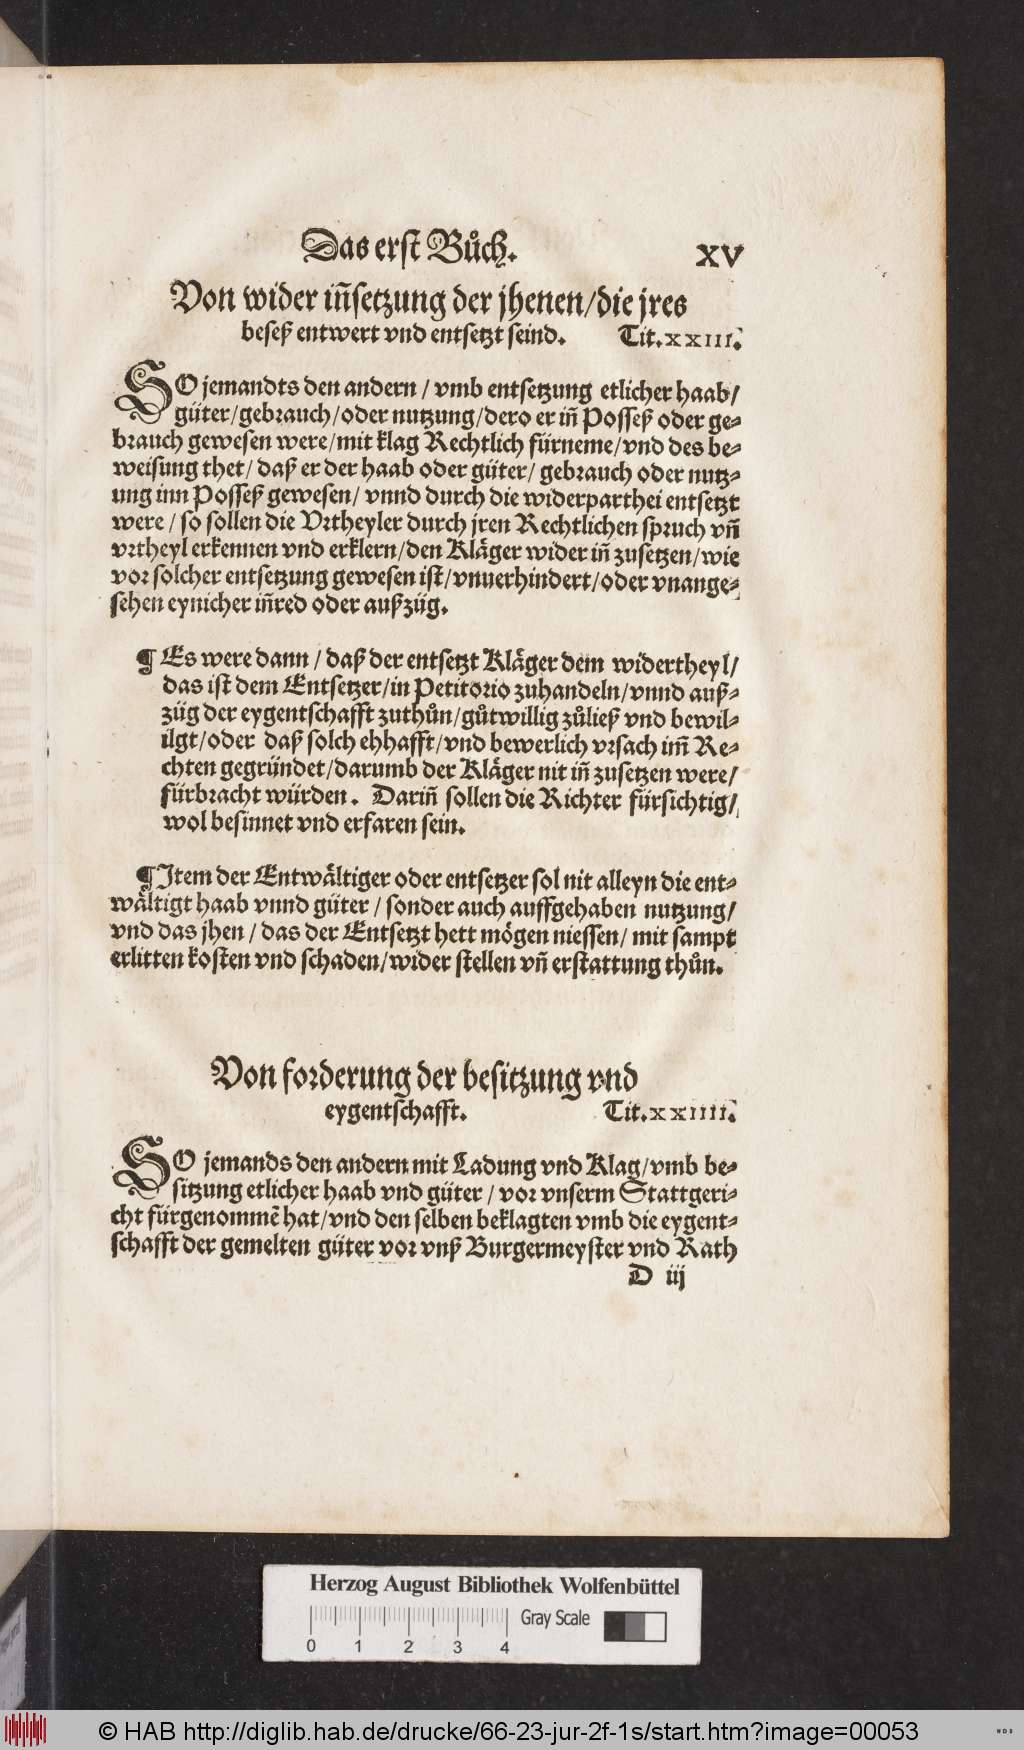 Das erst Bůch.
XV
Von wider iñsetzung der jhenen/die jres
beseß entwert vnd entsetzt seind. Tit.xxiii.
SO jemandts den andern / vmb entsetzung etlicher haab/
güter/gebrauch/oder nutzung/dero er iñ Posseß oder ge-
brauch gewesen were/mit klag Rechtlich fürneme/vnd des be-
weisung thet/ daß er der haab oder güter/ gebrauch oder nutz-
ung inn Posseß gewesen/ vnnd durch die widerparthei entsetzt
were / so sollen die Vrtheyler durch jren Rechtlichen spruch vñ
vrtheyl erkennen vnd erklern/den Kläger wider iñ zusetzen/wie
vor solcher entsetzung gewesen ist/vnuerhindert/oder vnange-
sehen eynicher iñred oder außzüg.
¶ Es were dann / daß der entsetzt Kläger dem widertheyl/
das ist dem Entsetzer/in Petitorio zuhandeln/vnnd auß-
züg der eygentschafft zuthůn/gůtwillig zůließ vnd bewil-
ilgt/oder daß solch ehhafft/vnd bewerlich vrsach im̃ Re-
chten gegründet/darumb der Kläger nit iñ zusetzen were/
fürbracht würden. Dariñ sollen die Richter fürsichtig/
wol besinnet vnd erfaren sein.
¶Item der Entwältiger oder entsetzer sol nit alleyn die ent-
wältigt haab vnnd güter / sonder auch auffgehaben nutzung/
vnd das jhen / das der Entsetzt hett mögen niessen/ mit sampt
erlitten kosten vnd schaden/wider stellen vñ erstattung thůn.
Von forderung der besitzung vnd
eygentschafft. Tit.xxiiii.
SO jemands den andern mit Ladung vnd Klag/vmb be-
sitzung etlicher haab vnd güter / vor vnserm Stattgeri-
cht fürgenommẽ hat/vnd den selben beklagten vmb die eygent-
schafft der gemelten güter vor vnß Burgermeyster vnd Rath
D iij
Herzog August Bibliothek Wolfenbüttel
Gray Scale
0 1 2 3 4
© HAB http://diglib.hab.de/drucke/66-23-jur-2f-1s/start.htm?image=00053